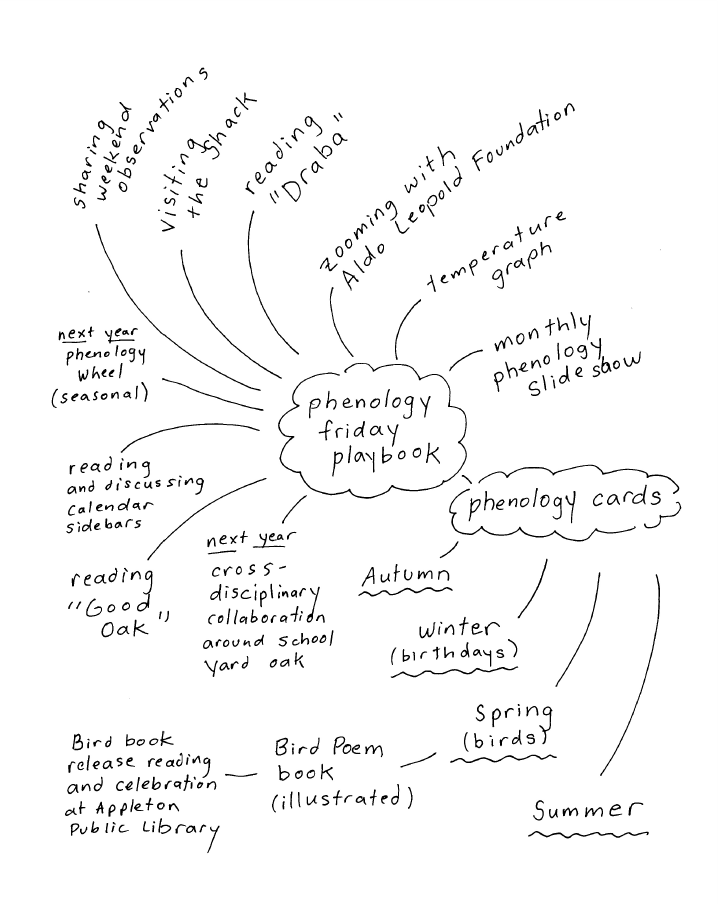 sharing
weekend
observations
visiting
the shack
reading
"Draba"
zooming with
Aldo Leopold Foundation
temperature
graph
monthly
phenology
slideshow
next year
phenology
wheel
(seasonal)
phenology
friday
playbook
reading
and discussing
calendar
sidebars
phenology cards
reading
"Good
Oak"
next year
cross-
disciplinary
collaboration
around school
yard oak
Autumn
Winter
(birthdays)
Spring
(birds)
Bird Poem
book
(illustrated)
Bird book
release reading
and celebration
at Appleton
Public Library
Summer